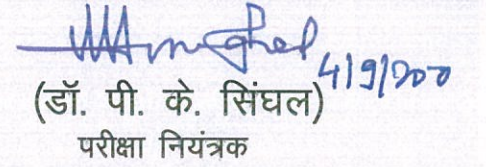 4/9/200
(डॉ. पी. के. सिंघल)
परीक्षा नियंत्रक